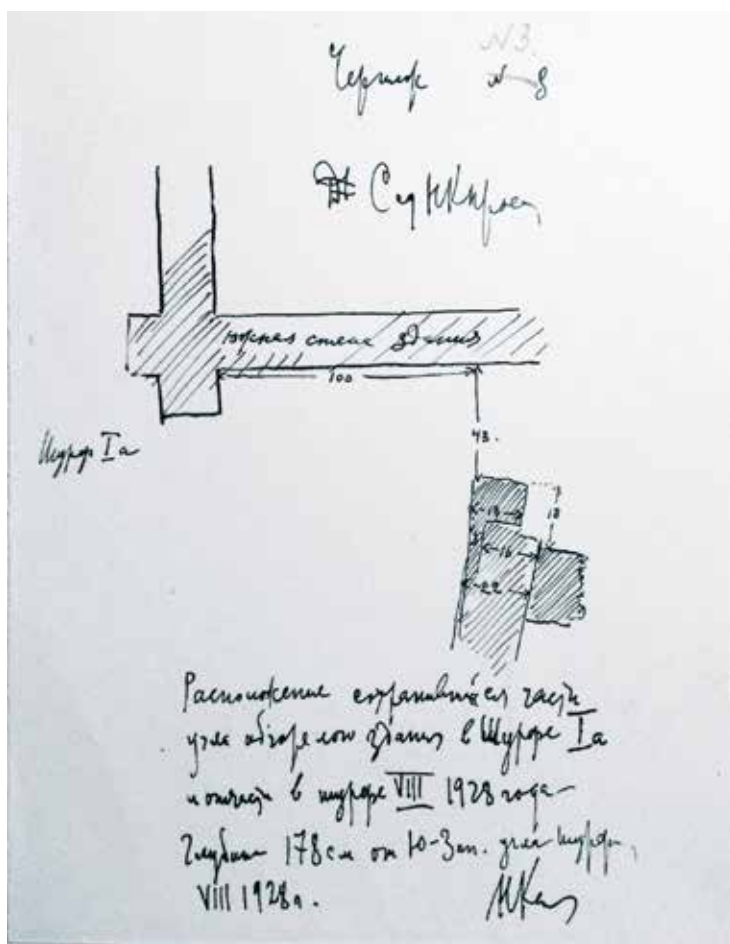 N3.
Чертеж N 8
южная стена здания
100
Шурф Ia
43.
13
18
16
22
Расположение сохранившейся части
угла обгорелого здания в Шурфе Ia
и отчасти в шурфе VIII 1928 года
Глубина 178 см от Ю-Зап. угла шурфа
VIII 1928г.